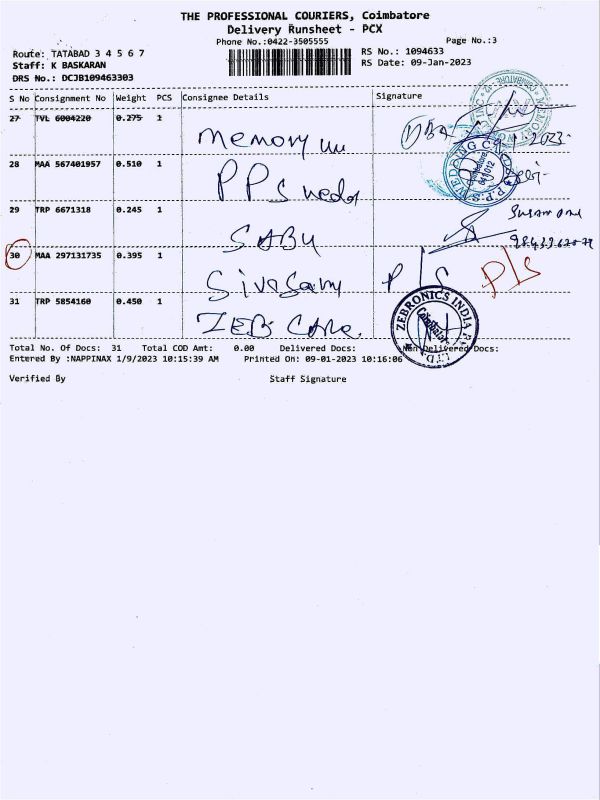 THE PROFESSIONAL COURIERS, Coimbatore
Delivery Runsheet - PCX
Phone No.:0422-3505555
Page No.:3
Route: TATABAD 3 4 5 6 7
RS No.: 1094633
Staff: K BASKARAN
RS Date: 09-Jan-2023
DRS No.: DCJB109463303
S No Consignment No Weight PCS Consignee Details Signature
27 TVL 6004220 0.275 1
Memory
28 MAA 567401957 0.510 1
PPS
29 TRP 6671318 0.245 1
SABU
30 MAA 297131735 0.395 1
Sivasamy P/S P/S
31 TRP 5854160 0.450 1
ZEB CARE
ZEBRONICS INDIA
Coimbatore
Total No. Of Docs: 31 Total COD Amt: 0.00 Delivered Docs: Non Delivered Docs:
Entered By :NAPPINAX 1/9/2023 10:15:39 AM Printed On: 09-01-2023 10:16:06
Verified By Staff Signature